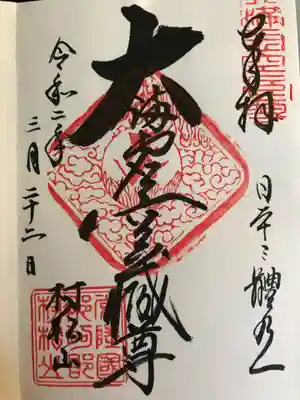 奉拝
日本三體乃一
大満虚空蔵尊
村松山
令和二年
三月二十二日